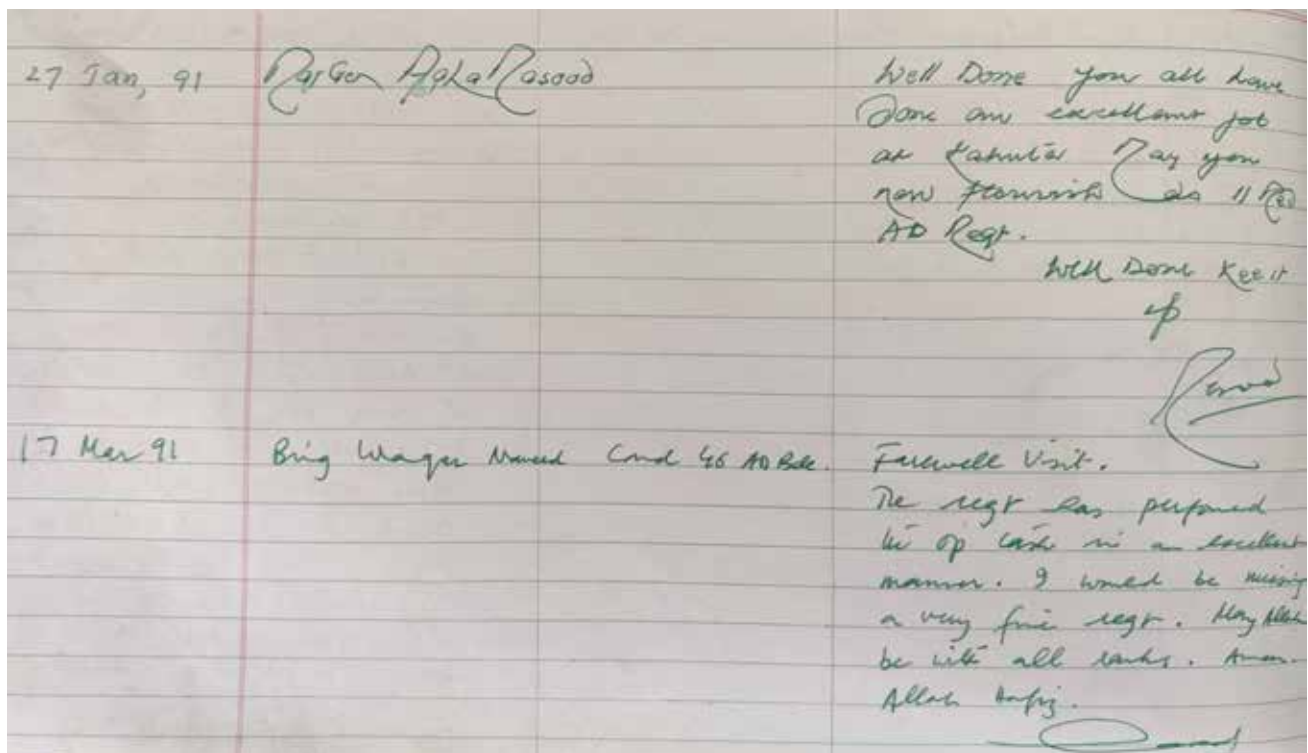 27 Jan, 91 Maj Gen Agha Masood Well Done you all have
Done an excellent job
at Kahuta May you
now flourish as 11 Med
AD Regt.
Well Done Keep it
up
Masood
17 Mar 91 Brig Waqar Cmd 46 AD Bde. Farewell Visit.
The regt has performed
its op task in an excellent
manner. I would be missing
a very fine regt. May Allah
be with all ranks. Ameen
Allah Hafiz.